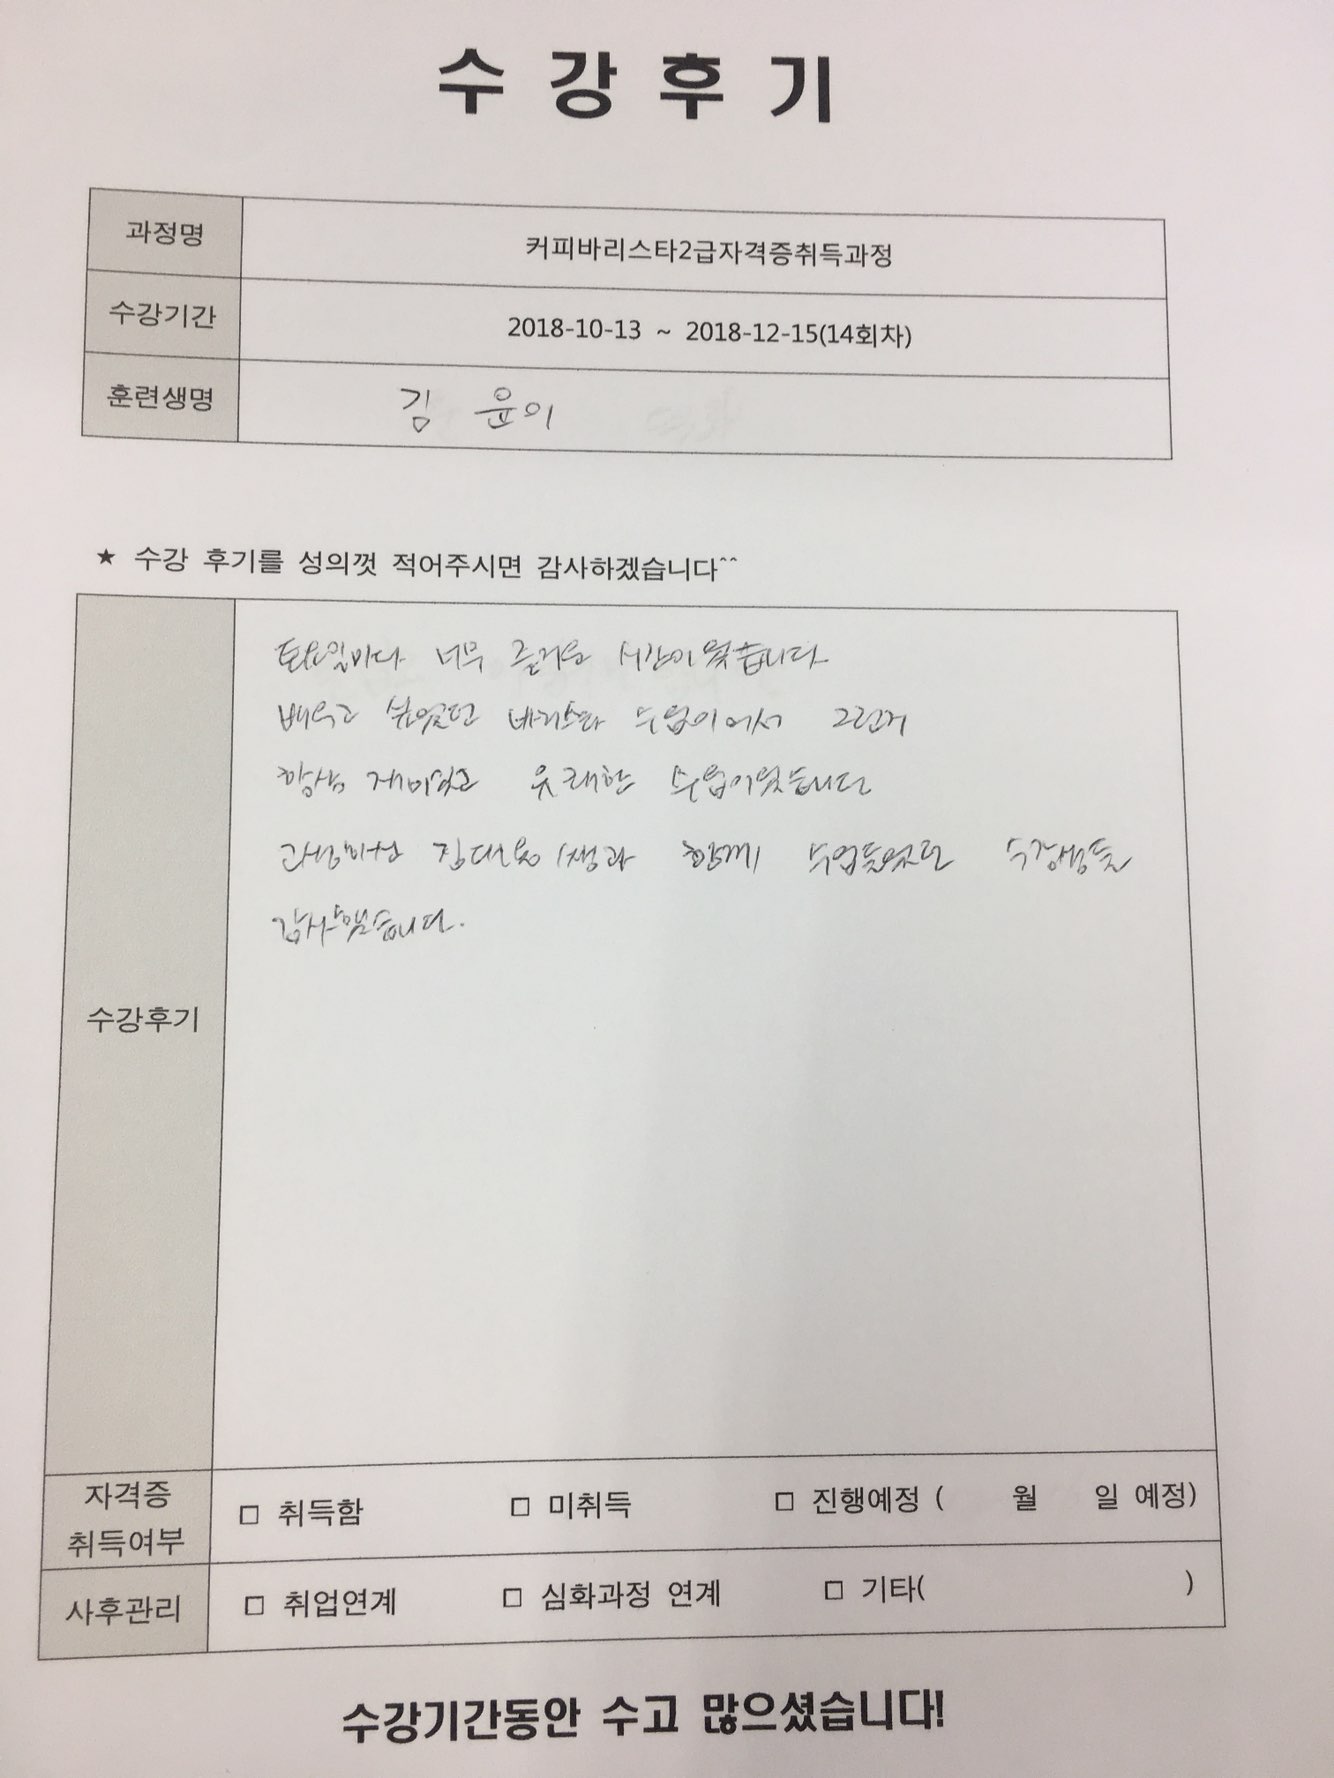 수강후기
과정명 커피바리스타2급자격증취득과정
수강기간 2018-10-13 ~ 2018-12-15(14회차)
훈련생명 김 윤이
★ 수강 후기를 성의껏 적어주시면 감사하겠습니다^^
수강후기
토요일마다 너무 즐거운 시간이었습니다
배우고 싶었던 바리스타 수업이어서 그런지
항상 재미있고 유쾌한 수업이었습니다
고생하신 함께 수업들었던 수강생들
감사했습니다.
자격증 취득여부
□ 취득함 □ 미취득 □ 진행예정 ( 월 일 예정)
사후관리 □ 취업연계 □ 심화과정 연계 □ 기타( )
수강기간동안 수고 많으셨습니다!